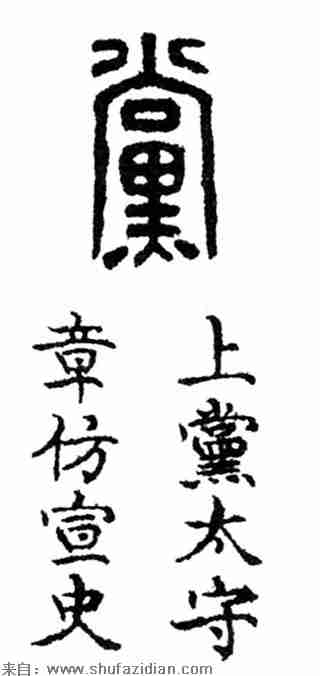 黨
上黨太守
章仿宣史
来自：www.shufazidian.com